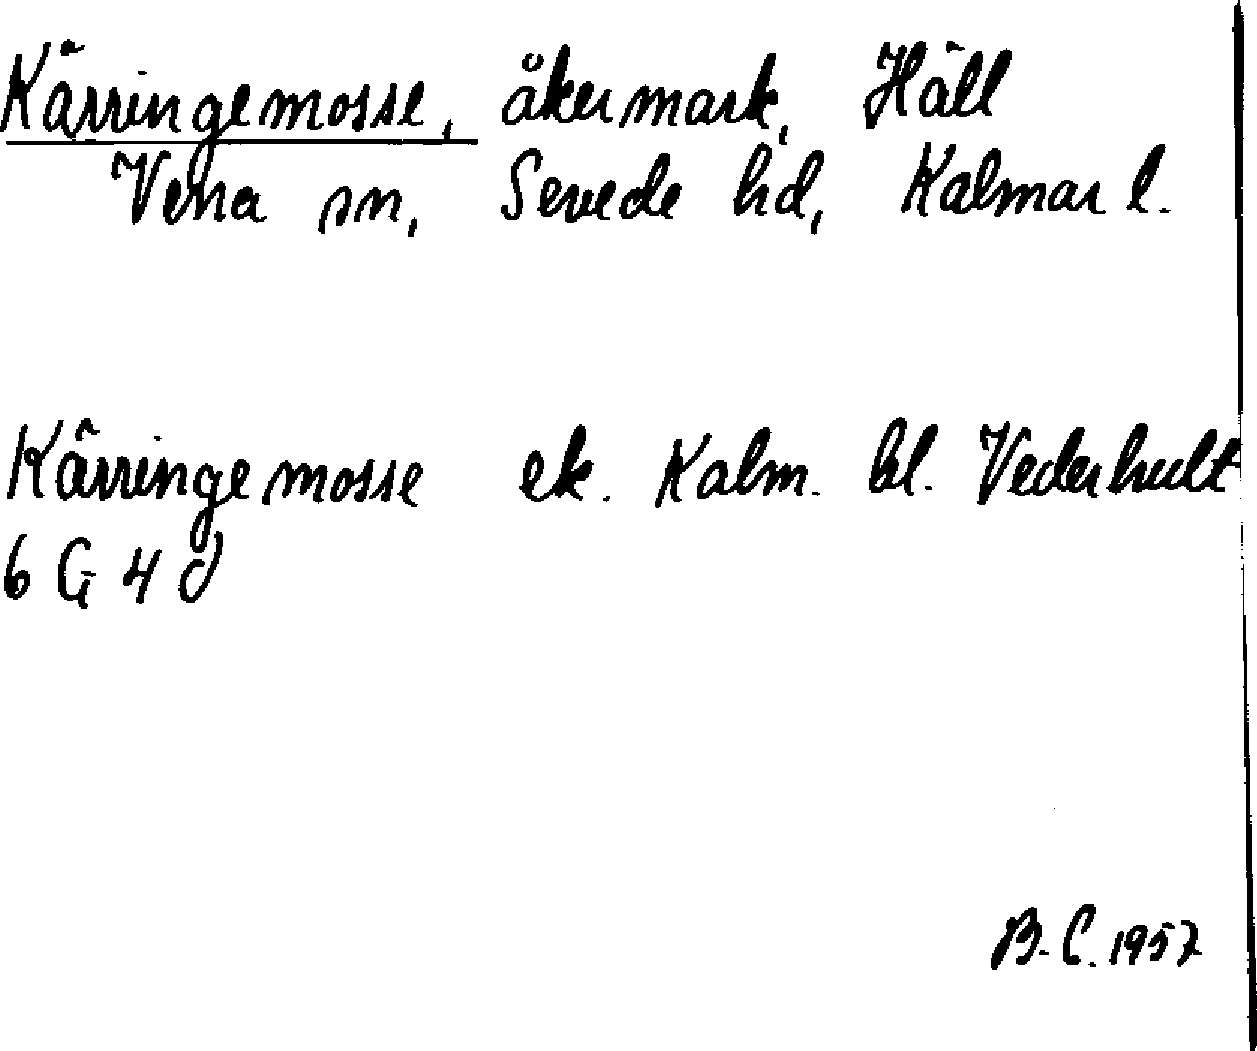 Kärringemosse, åkermark, Häll
Vena sn, Sevede hd, Kalmar l.
Kärringemosse ek. Kalm. bl. Vederhult
6 G 4 d
B.C. 1957